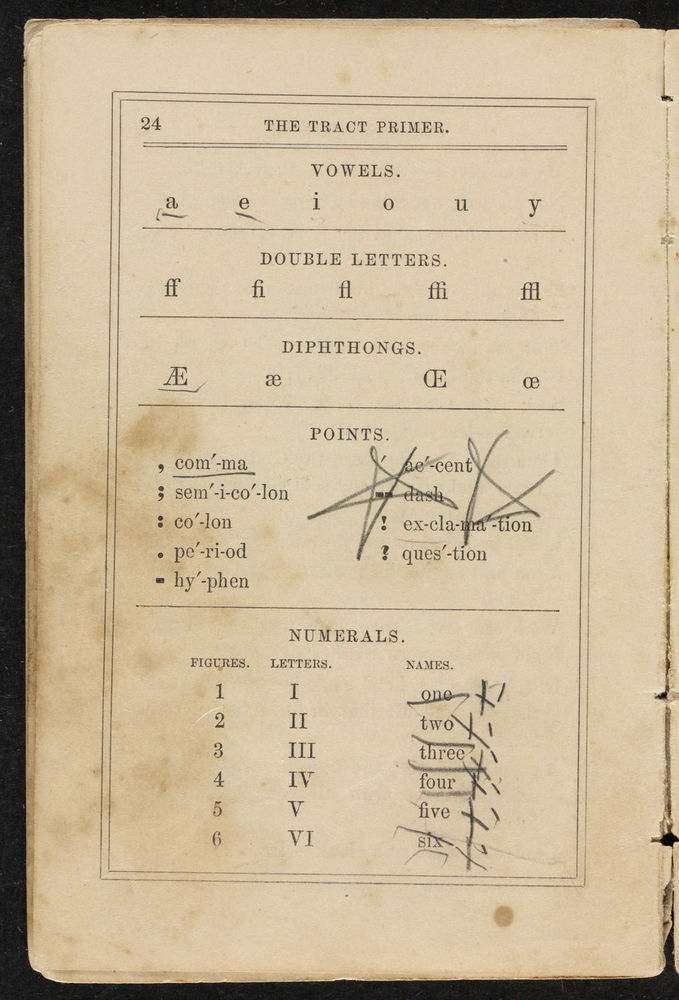 24 THE TRACT PRIMER.
VOWELS.
a e i o u y
DOUBLE LETTERS.
ff fi fl ffi ffl
DIPHTHONGS.
Æ æ Œ œ
POINTS.
, com′-ma ′ ac′-cent
; sem′-i-co′-lon - dash
: co′-lon ! ex-cla-ma′-tion
. pe′-ri-od ? ques′-tion
- hy′-phen
NUMERALS.
FIGURES. LETTERS. NAMES.
1 I one
2 II two
3 III three
4 IV four
5 V five
6 VI six